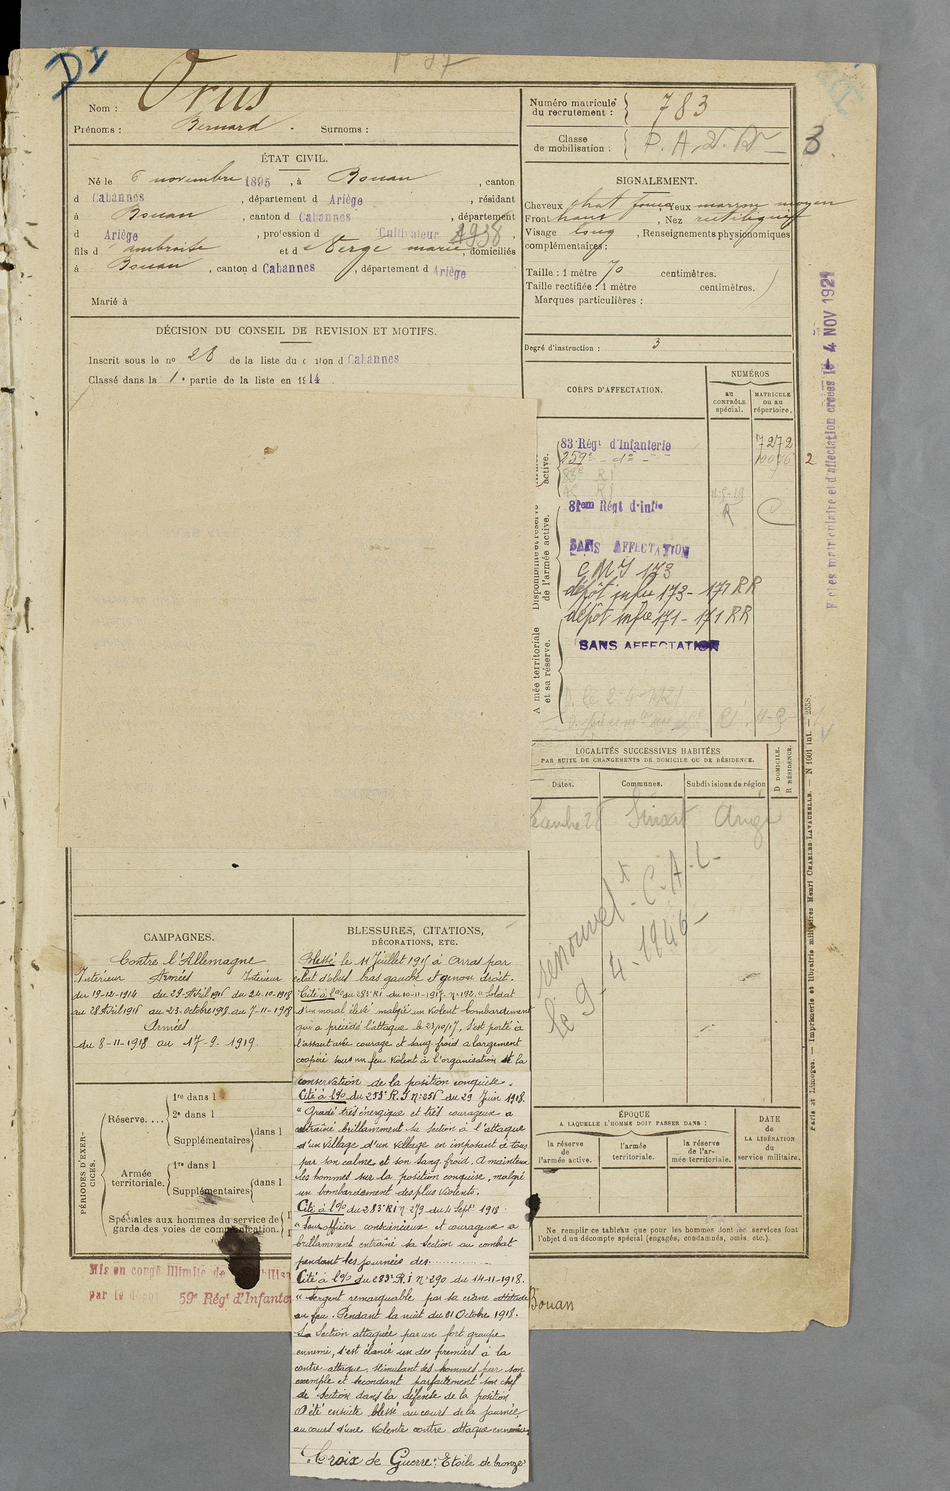 Dr
Nom : Orus
Prénoms : Bernard . Surnoms :
Numéro matricule du recrutement : 783
Classe de mobilisation :
3
ÉTAT CIVIL.
Né le 6 novembre 1895, à Bouan, canton
d Cabannes, département d Ariège, résidant
à Bouan, canton d Cabannes, département
d Ariège, profession d Cultivateur 1938
fils d ambroise et d Verge marie, domiciliés
à Bouan, canton d Cabannes, département d Ariège
Marié à
SIGNALEMENT.
Cheveux chat foncé, Yeux marron moyen
Front haut, Nez rectiligne
Visage long, Renseignements physionomiques
complémentaires :
Taille : 1 mètre 70 centimètres.
Taille rectifiée : 1 mètre centimètres.
Marques particulières :
Degré d'instruction : 3
DÉCISION DU CONSEIL DE REVISION ET MOTIFS.
Inscrit sous le no 28 de la liste du c ton d Cabannes
Classé dans la 1e partie de la liste en 1914
CORPS D'AFFECTATION.
NUMÉROS
au CONTRÔLE spécial.
MATRICULE ou au répertoire.
active.
83 Régt d'Infanterie 7272
259e - do -
81em Régt d'infie R C
Disponibilité et réserve de l'armée active.
SANS AFFECTATION
C M I 173
dépôt infie 173 - 171 RR
dépôt infie 171 - 171 RR
SANS AFFECTATION
A mée territoriale et sa réserve.
2
4 NOV 1921
LOCALITÉS SUCCESSIVES HABITÉES
PAR SUITE DE CHANGEMENTS DE DOMICILE OU DE RÉSIDENCE.
Dates. Communes. Subdivisions de région
D DOMICILE.
R RÉSIDENCE.
Sinsat
renouvelt C.A.L.
le 9-4-1946-
CAMPAGNES.
Contre l'Allemagne
Intérieur Armées Intérieur
du 19-12-1914 du 29-Avril 1916 du 24-10-1918
au 28 Avril 1916 au 23 octobre 1918 au 7-11-1918
Armées
du 8-11-1918 au 17-9-1919.
BLESSURES, CITATIONS,
DÉCORATIONS, ETC.
Blessé le 11 Juillet 1917 à Arras par
éclat d'obus bras gauche et genou droit.
Cité à l'o/o du 283e RI du 10-11-1917 no 192. "Soldat
d'un moral élevé malgré un violent bombardement
qui a précédé l'attaque le 23/10/17. S'est porté à
l'assaut avec courage et sang froid a largement
coopéré sous un feu violent à l'organisation et la
conservation de la position conquise.
Cité à l'o/o du 283e R.I no 256 du 29 Juin 1918.
"Gradé très énergique et très courageux a
entraîné brillamment sa section à l'attaque
d'un village d'un village en imposant à tous
par son calme et son sang froid. A maintenu
les hommes sur la position conquise, malgré
un bombardement des plus violents.
Cité à l'o/o du 283e RI no 279 du 4 Septe 1918
"Sous officier consciencieux et courageux a
brillamment entraîné sa section au combat
pendant les journées des..........
Cité à l'o/o du 283e R.I no 290 du 14-11-1918.
"Sergent remarquable par sa crâne attitude
au feu. Pendant la nuit du 01 Octobre 1918.
La Section attaquée par un fort groupe
ennemi, s'est élancé un des premiers à la
contre attaque, stimulant les hommes par son
exemple et secondant parfaitement son chef
de section dans la défense de la position
A été ensuite blessé au cours de la journée
au cours d'une violente contre attaque ennemie.
Croix de Guerre : Etoile de bronze
PÉRIODES D'EXERCICES.
Réserve.... 1re dans l
2e dans l
Supplémentaires dans l
Armée territoriale. 1re dans l
Supplémentaires dans l
Spéciales aux hommes du service de garde des voies de communication.
Mis en congé illimité de
par le dépôt 59e Rég't d'Infanterie
Bouan
ÉPOQUE
A LAQUELLE L'HOMME DOIT PASSER DANS :
la réserve de l'armée active.
l'armée territoriale.
la réserve de l'armée territoriale.
DATE de LA LIBÉRATION du service militaire.
Ne remplir ce tableau que pour les hommes dont les services font
l'objet d'un décompte spécial (engagés, condamnés, omis, etc.).
Paris et Limoges. — Imprimerie et librairie militaires Henri CHARLES-LAVAUZELLE. — N 1001 int. — 2558.